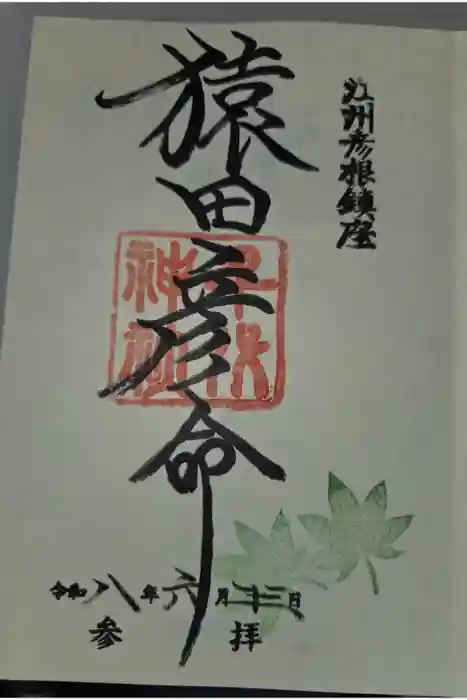 江州彦根鎮座
猿田彦命
千代
神社
令和八年六月十三日
参拝